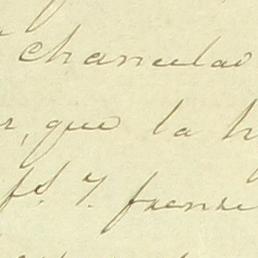 chancelado
r, que la h
fs. 7. frente